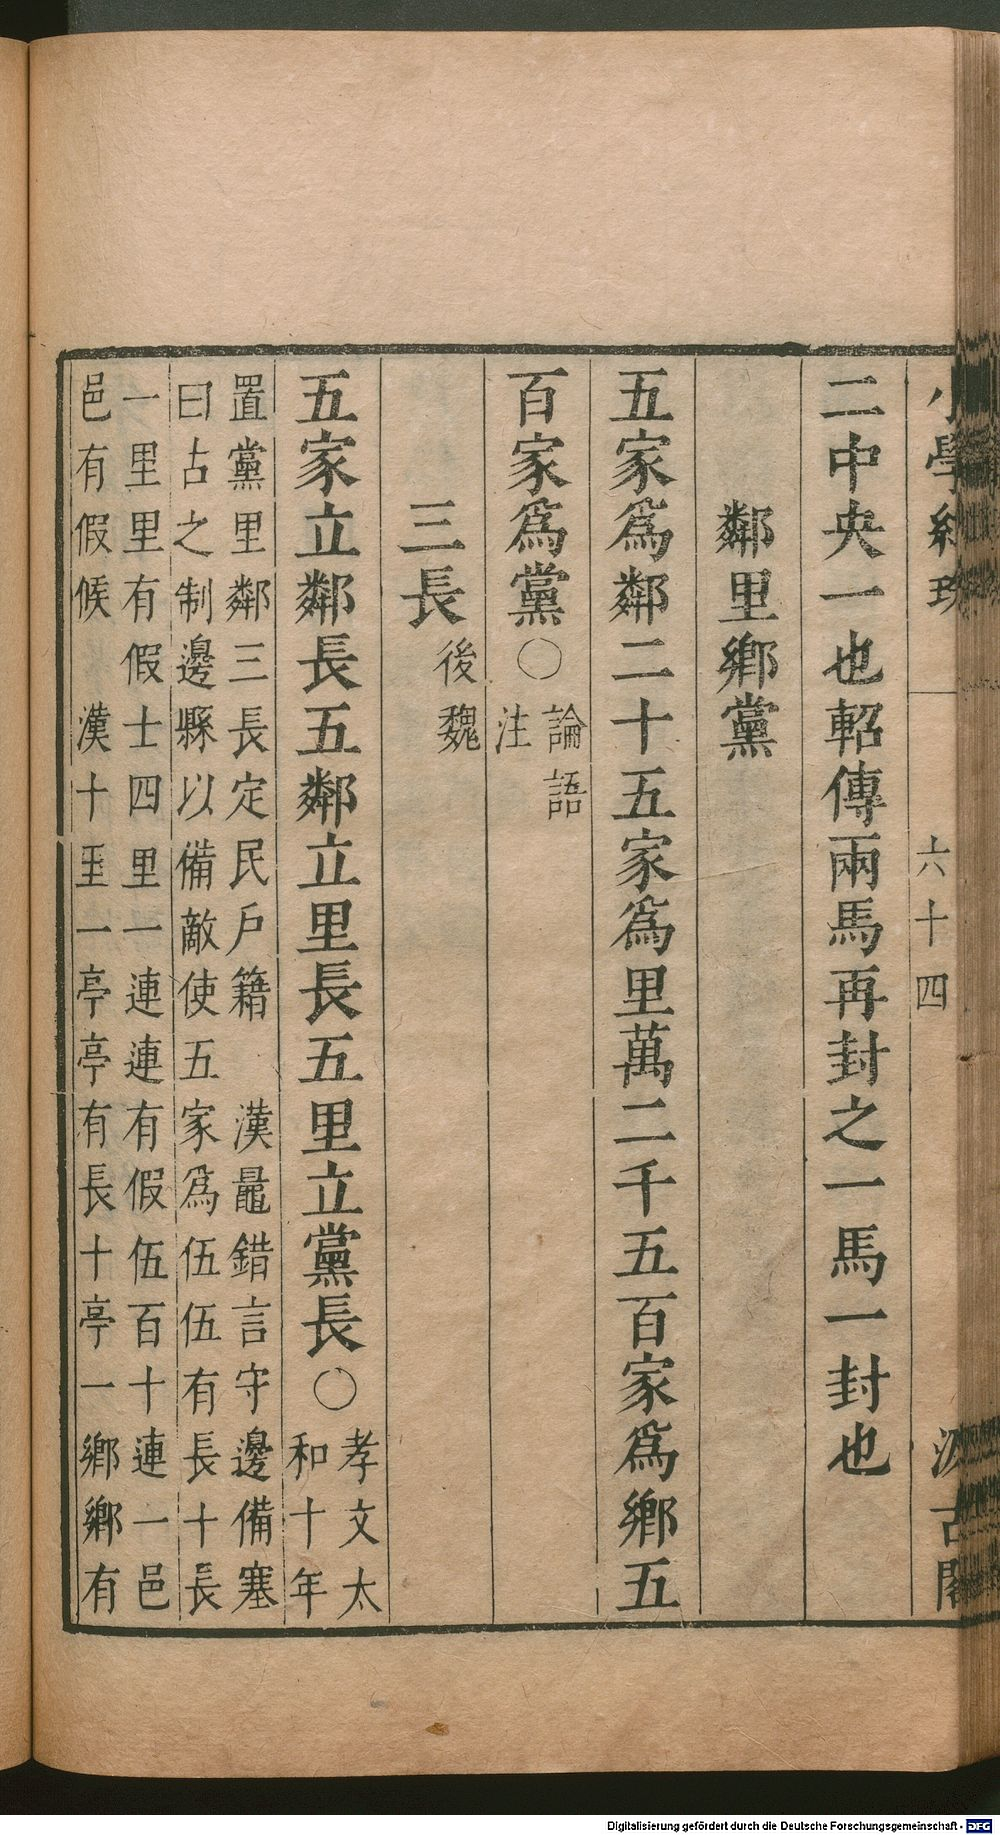 小學紺珠 六十四 汲古閣
二中央一也軺傳兩馬再封之一馬一封也
鄰里鄉黨
五家爲鄰二十五家爲里萬二千五百家爲鄉五
百家爲黨○論語
注
三長後
魏
五家立鄰長五鄰立里長五里立黨長○孝文太
和十年
置黨里鄰三長定民戶籍 漢鼂錯言守邊備塞
曰古之制邊縣以備敵使五家爲伍伍有長十長
一里里有假士四里一連連有假伍百十連一邑
邑有假候 漢十里一亭亭有長十亭一鄉鄉有
Digitalisierung gefördert durch die Deutsche Forschungsgemeinschaft - DFG